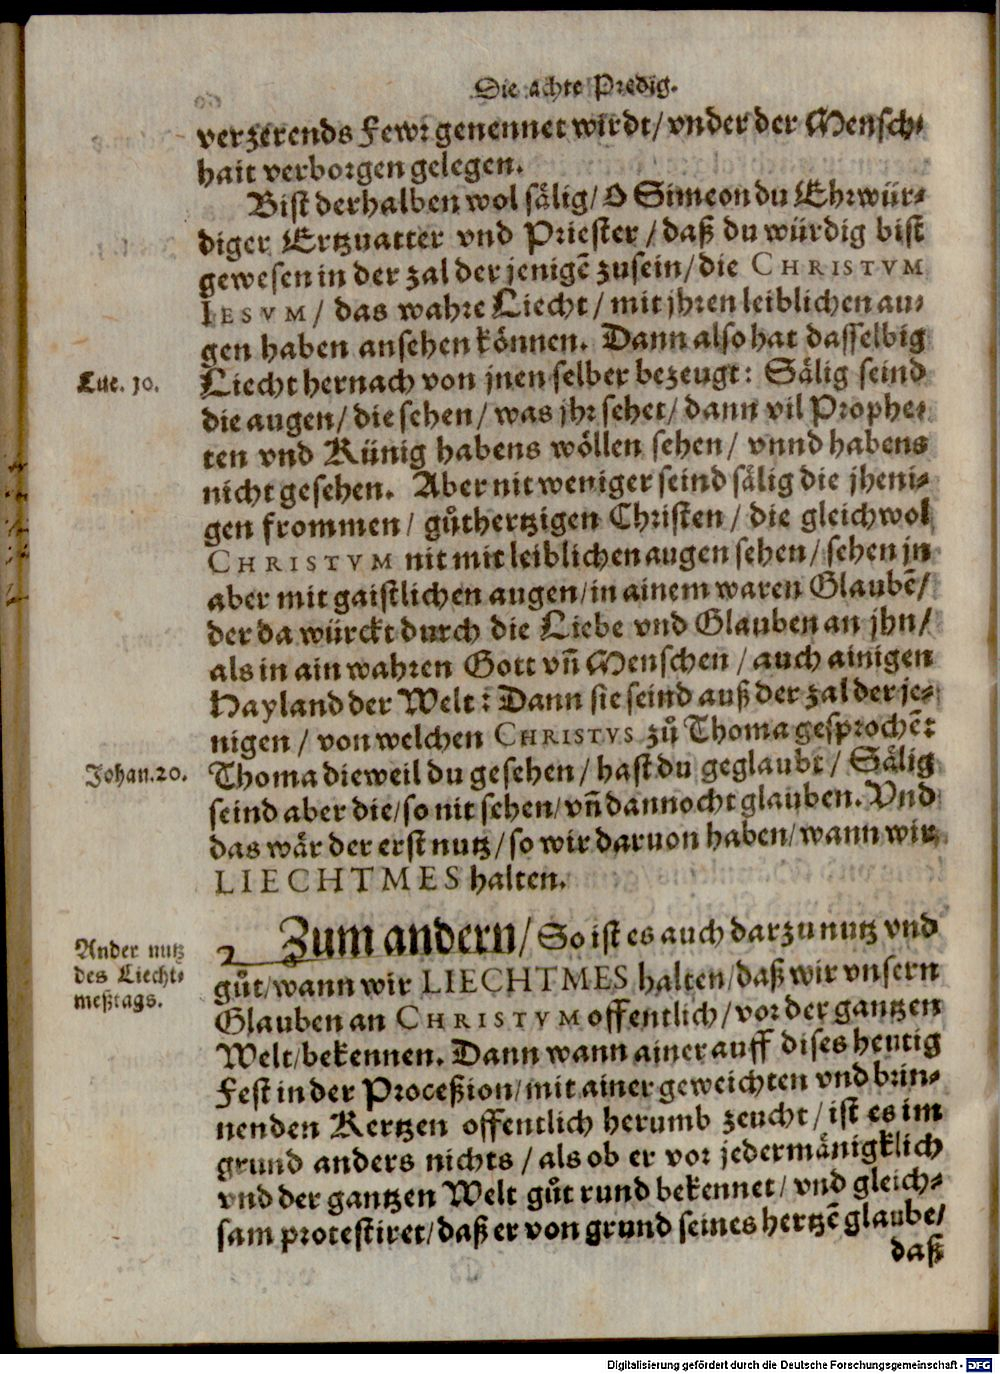 Die achte Predig.
verzerends Fewr genennet wirdt/ vnder der Mensch⸗
hait verborgen gelegen.
Bist derhalben wol sälig/ O Simeon du Ehrwür⸗
diger Ertzuatter vnd Priester/ daß du würdig bist
gewesen in der zal der jenigē zusein/ die CHRISTVM
IESVM/ das wahre Liecht/ mit jhren leiblichen au⸗
gen haben ansehen können. Dann also hat dasselbig
Luc. 10.
Liecht hernach von jnen selber bezeugt: Sälig seind
die augen/ die sehen/ was jhr sehet/ dann vil Prophe⸗
ten vnd Künig habens wöllen sehen/ vnnd habens
nicht gesehen. Aber nit weniger seind sälig die jheni⸗
gen frommen/ gůthertzigen Christen/ die gleichwol
CHRISTVM nit mit leiblichen augen sehen/ sehen jn
aber mit gaistlichen augen/ in ainem waren Glaubē/
der da würckt durch die Liebe vnd Glauben an jhn/
als in ain wahren Gott vñ Menschen/ auch ainigen
Hayland der Welt: Dann sie seind auß der zal der je⸗
nigen/ von welchen CHRISTVS zů Thoma gesprochē:
Johan. 20.
Thoma dieweil du gesehen/ hast du geglaubt/ Sälig
seind aber die/ so nit sehen/ vñ dannocht glauben. Vnd
das wär der erst nutz/ so wir daruon haben/ wann wir
LIECHTMES halten.
Ander nutz
des Liecht⸗
meßtags.
2 Zum andern/ So ist es auch darzu nutz vnd
gůt/ wann wir LIECHTMES halten/ daß wir vnsern
Glauben an CHRISTVM offentlich/ vor der gantzen
Welt/ bekennen. Dann wann ainer auff dises heutig
Fest in der Proceßion/ mit ainer geweichten vnd brin⸗
nenden Kertzen offentlich herumb zeucht/ ist es im
grund anders nichts/ als ob er vor jedermänigklich
vnd der gantzen Welt gůt rund bekennet/ vnd gleich⸗
sam protestiret/ daß er von grund seines hertzē glaube/
daß
Digitalisierung gefördert durch die Deutsche Forschungsgemeinschaft - DFG